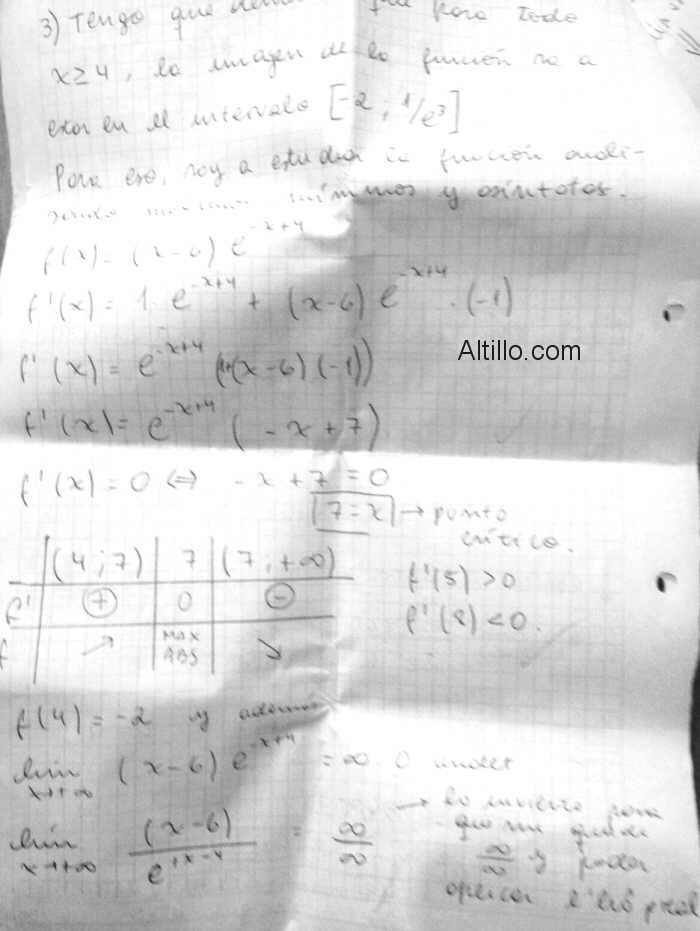 3) Tengo que que para todo
x≥4, la imagen de la función va a
estar en el intervalo [-2 ; 1/e³]
Para eso, voy a estudiar la función anali-
mínimos y asíntotas.
f(x) = (x-6) e^{-x+4}
f'(x) = 1 · e^{-x+4} + (x-6) e^{-x+4} · (-1)
f'(x) = e^{-x+4} (1+(x-6)(-1))
Altillo.com
f'(x) = e^{-x+4} (-x+7)
f'(x) = 0 ⇔ -x+7 = 0
7 = x → punto
crítico.
(4;7) 7 (7;+∞)
f' + 0 -
f ↗ MAX ABS ↘
f'(5) > 0
f'(8) < 0.
f(4) = -2 y además
lim x→+∞ (x-6) e^{-x+4} = ∞ · 0 indet
lim x→+∞ (x-6) / e^{+x-4} = ∞/∞
→ lo invierto para
que me quede
∞/∞ y poder
aplicar L'Hôpital